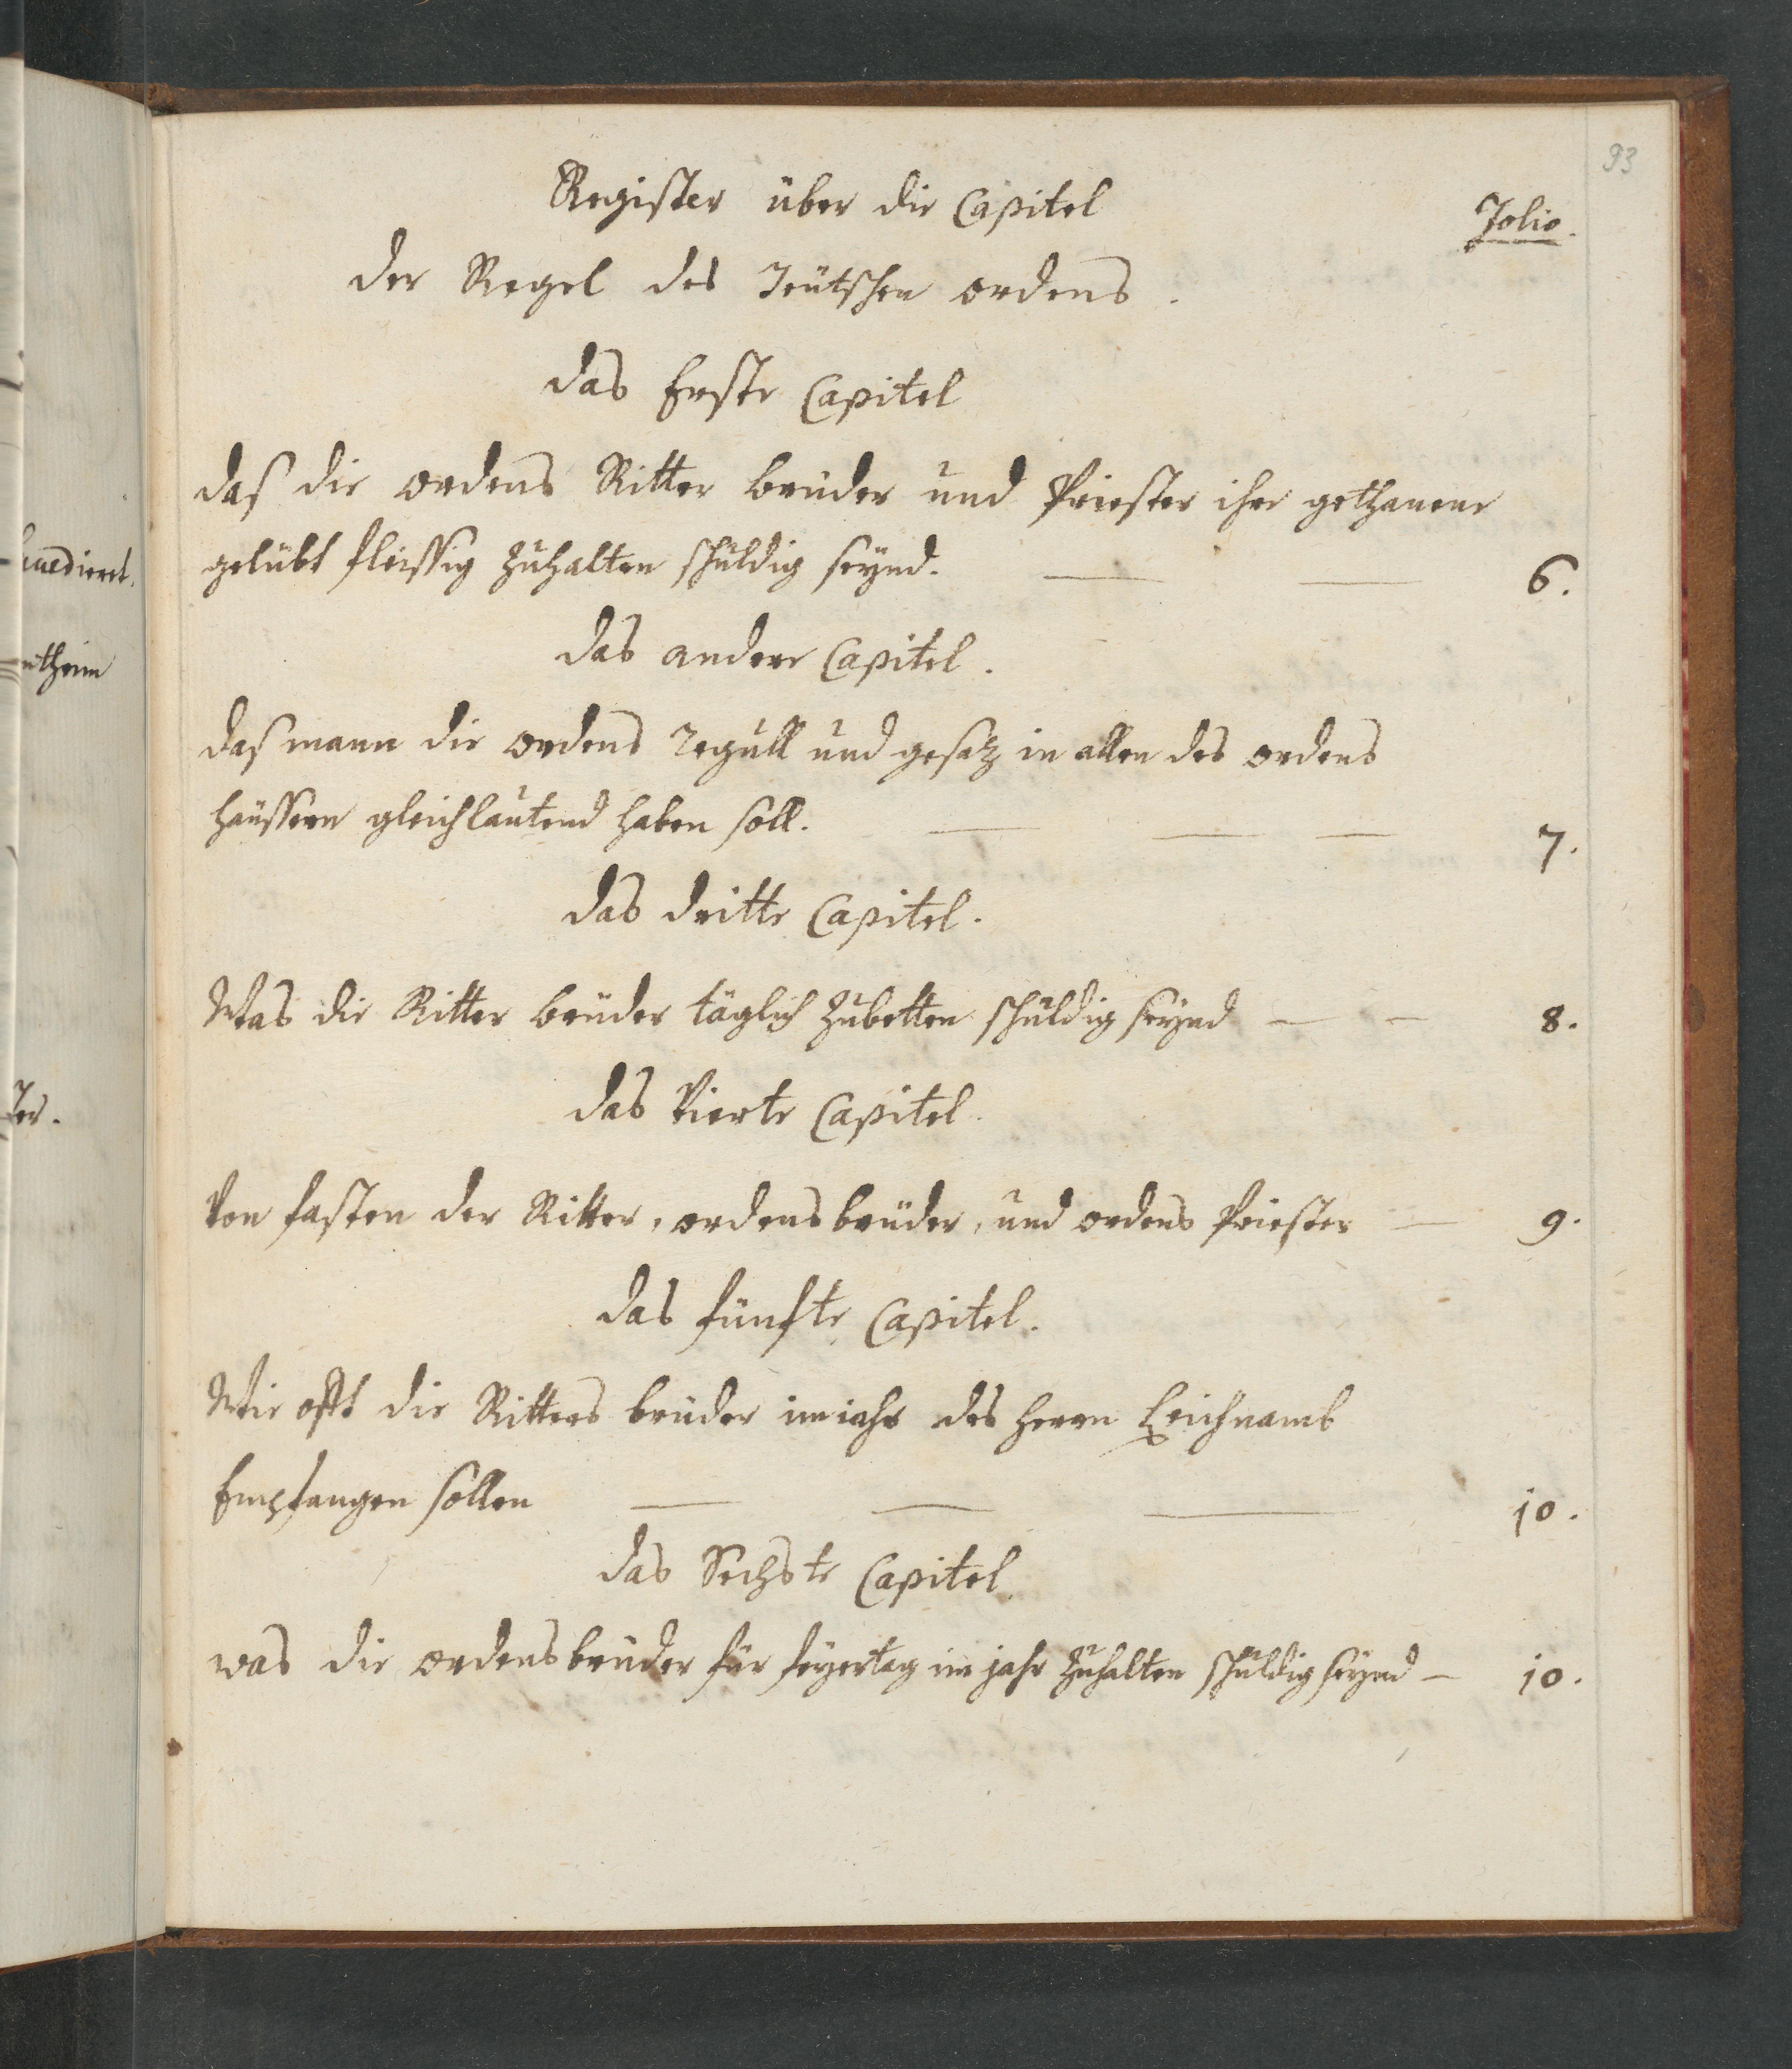 93
Register über die Capitel
Folio.
der Regel des Teütschen ordens.
das Erste Capitel
daß die ordens Ritter brüder und Priester ihre gethanene
gelübt fleissig zuhalten schuldig seynd. 6.
das andere Capitel.
daß mann die ordens Regull und gesatz in allen des ordens
häussern gleichlautend haben soll. 7.
das dritte Capitel.
Was die Ritter brüder täglich zubetten schuldig seynd 8.
das Vierte Capitel.
Von fasten der Ritter, ordens brüder, und ordens Priester 9.
das fünfte Capitel.
Wie offt die Ritters brüder im iahr des herrn Leichnamb
Empfangen sollen 10.
das Sechste Capitel.
was die ordens brüder für feyertag im jahr zuhalten schuldig seynd 10.